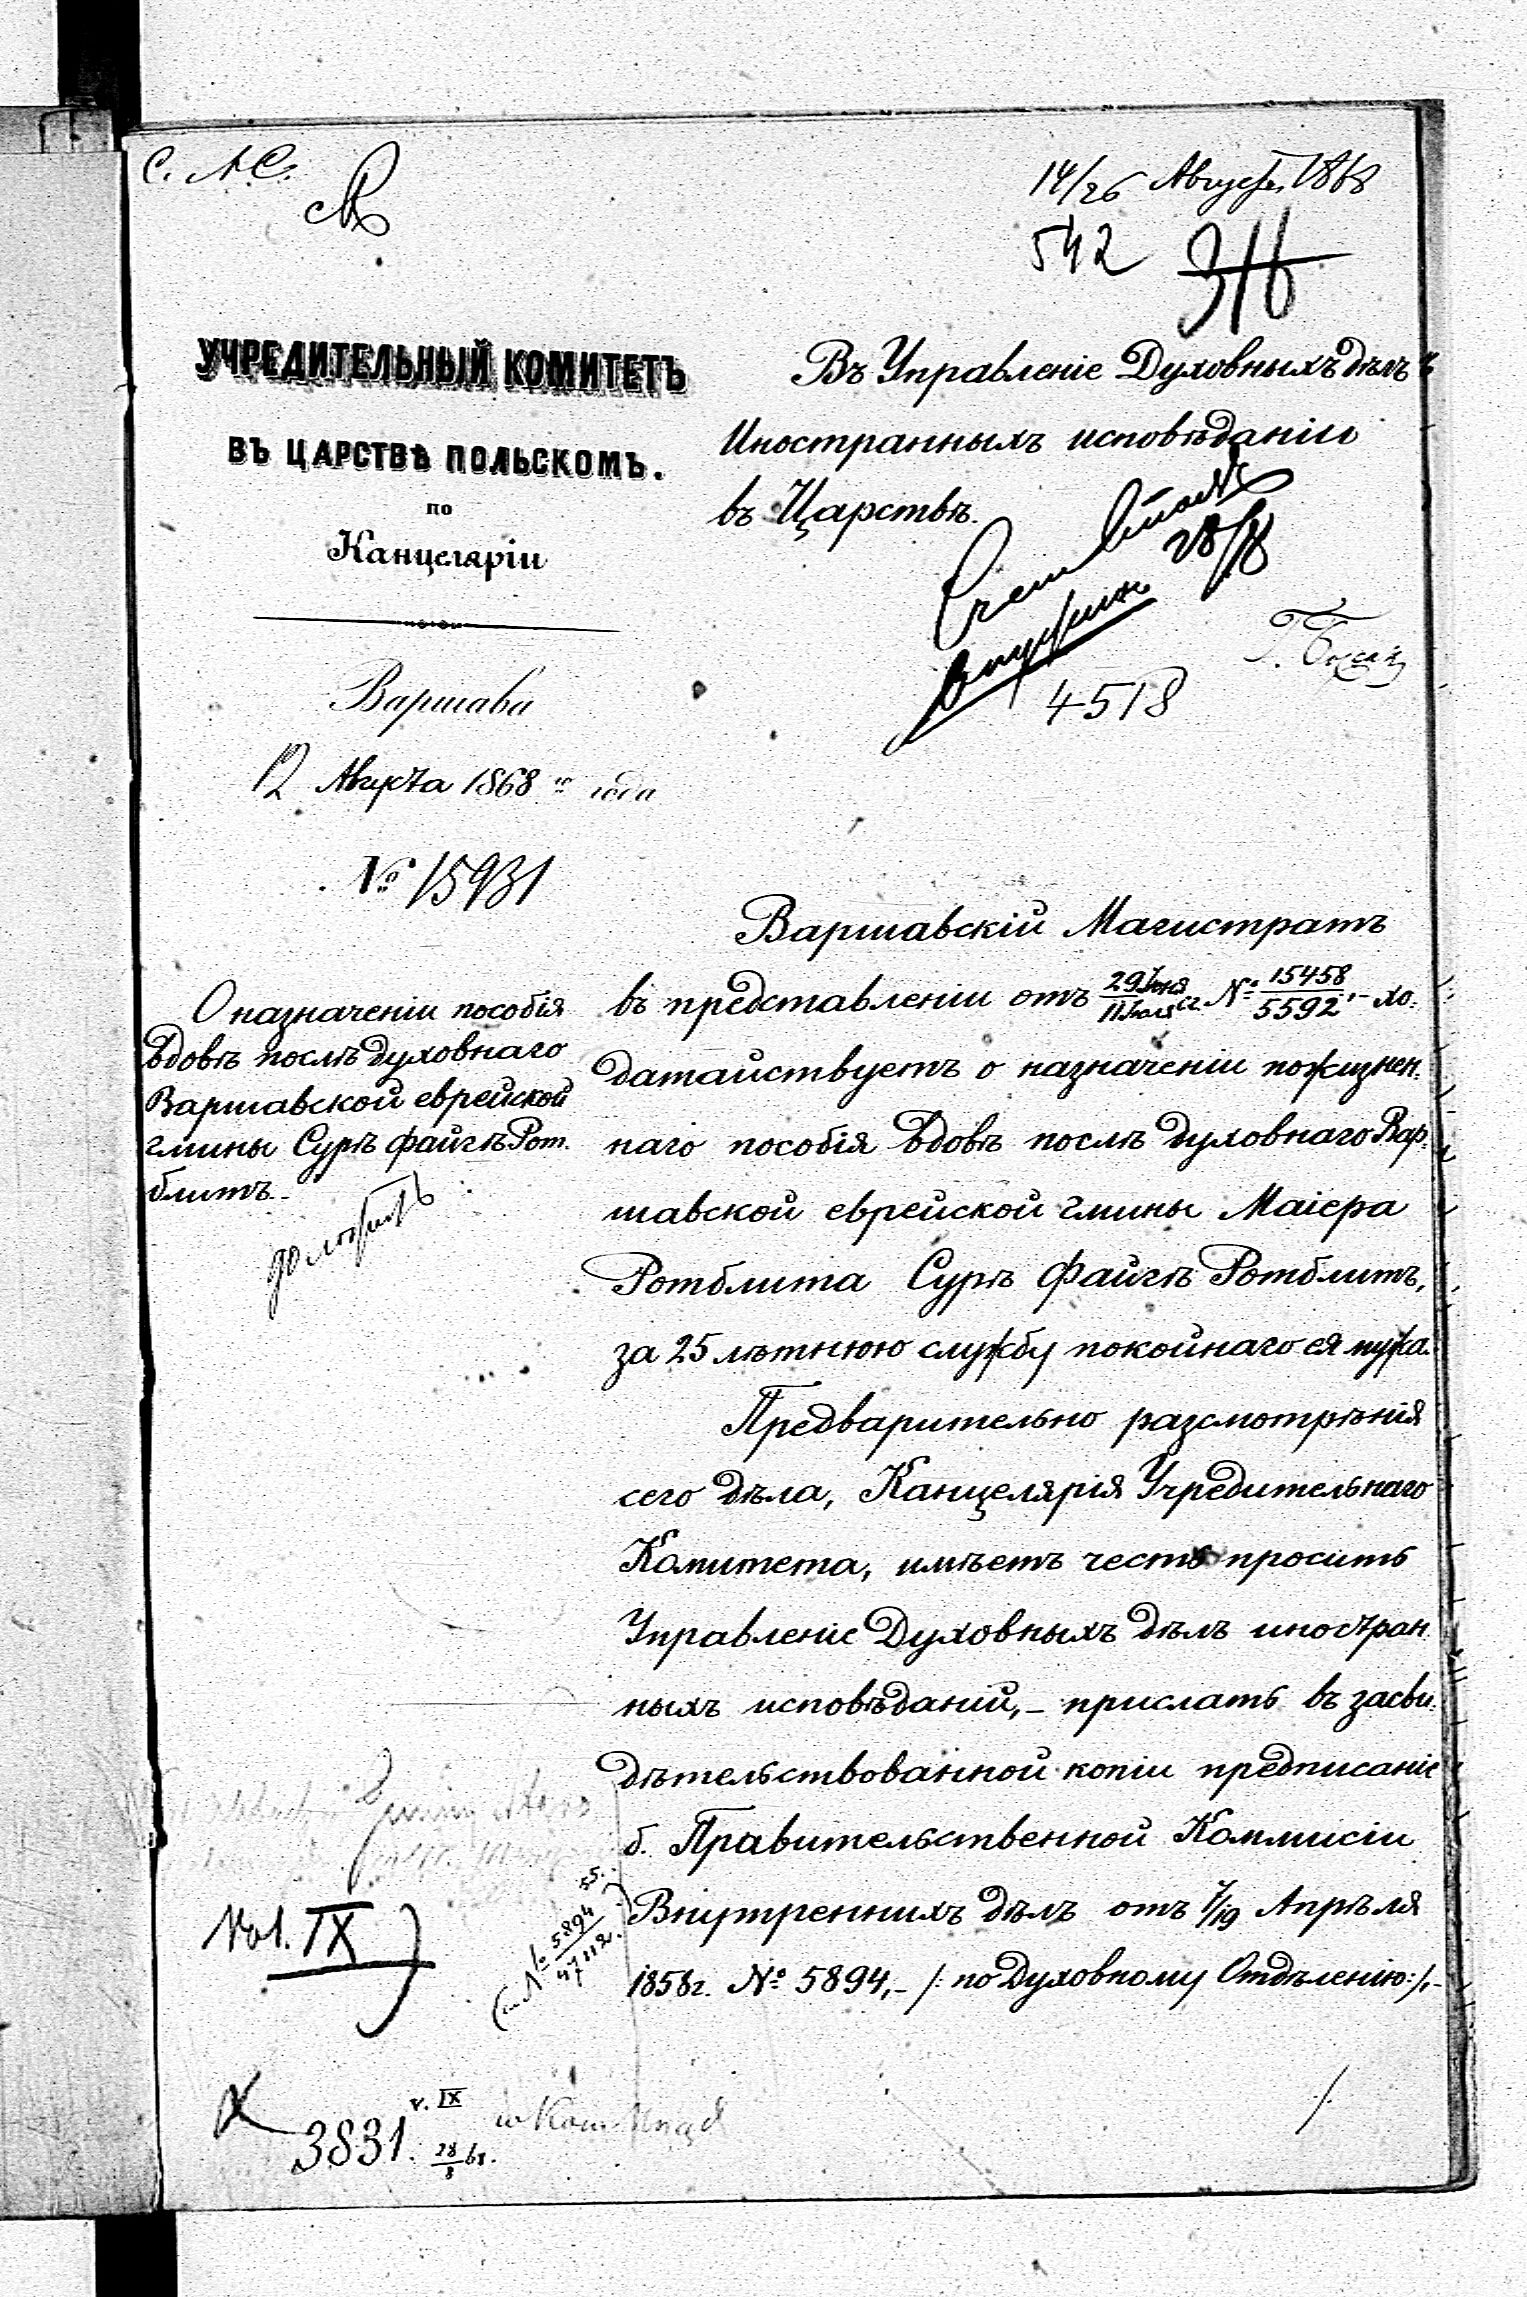 С. А. С.
14/26 Августа 1868
542 316
УЧРЕДИТЕЛЬНЫЙ КОМИТЕТЪ
ВЪ ЦАРСТВѢ ПОЛЬСКОМЪ.
по
Канцеляріи
Варшава
12 Августа 1868 го года
№ 15931
О назначеніи пособія
вдовѣ послѣ духовнаго
Варшавской еврейской
гмины Сурѣ Файгѣ Рот-
блитъ.
доложить
Въ Управленіе Духовныхъ дѣлъ
Иностранныхъ исповѣданій
въ Царствѣ.
28/8
4518
Варшавскій Магистратъ
въ представленіи отъ 29 Іюня/11 Іюля сг. № 15458/5592,- хо-
датайствуетъ о назначеніи пожизнен-
наго пособія вдовѣ послѣ духовнаго Вар-
шавской еврейской гмины Маіера
Ротблита Сурѣ Файгѣ Ротблитъ,
за 25 лѣтнюю службу покойнаго ея мужа.
Предварительно разсмотрѣнія
сего дѣла, Канцелярія Учредительнаго
Комитета, имѣетъ честь просить
Управленіе Духовныхъ дѣлъ иностран-
ныхъ исповѣданій,- прислать въ засви-
дѣтельствованной копіи предписаніе
б. Правительственной Коммисіи
Внутреннихъ дѣлъ отъ 7/19 Апрѣля
1858г. № 5894,- /: по Духовному Отдѣленію:/,-
Vol. IX
№ 5894/47112
3831. v. IX 28/8 68.